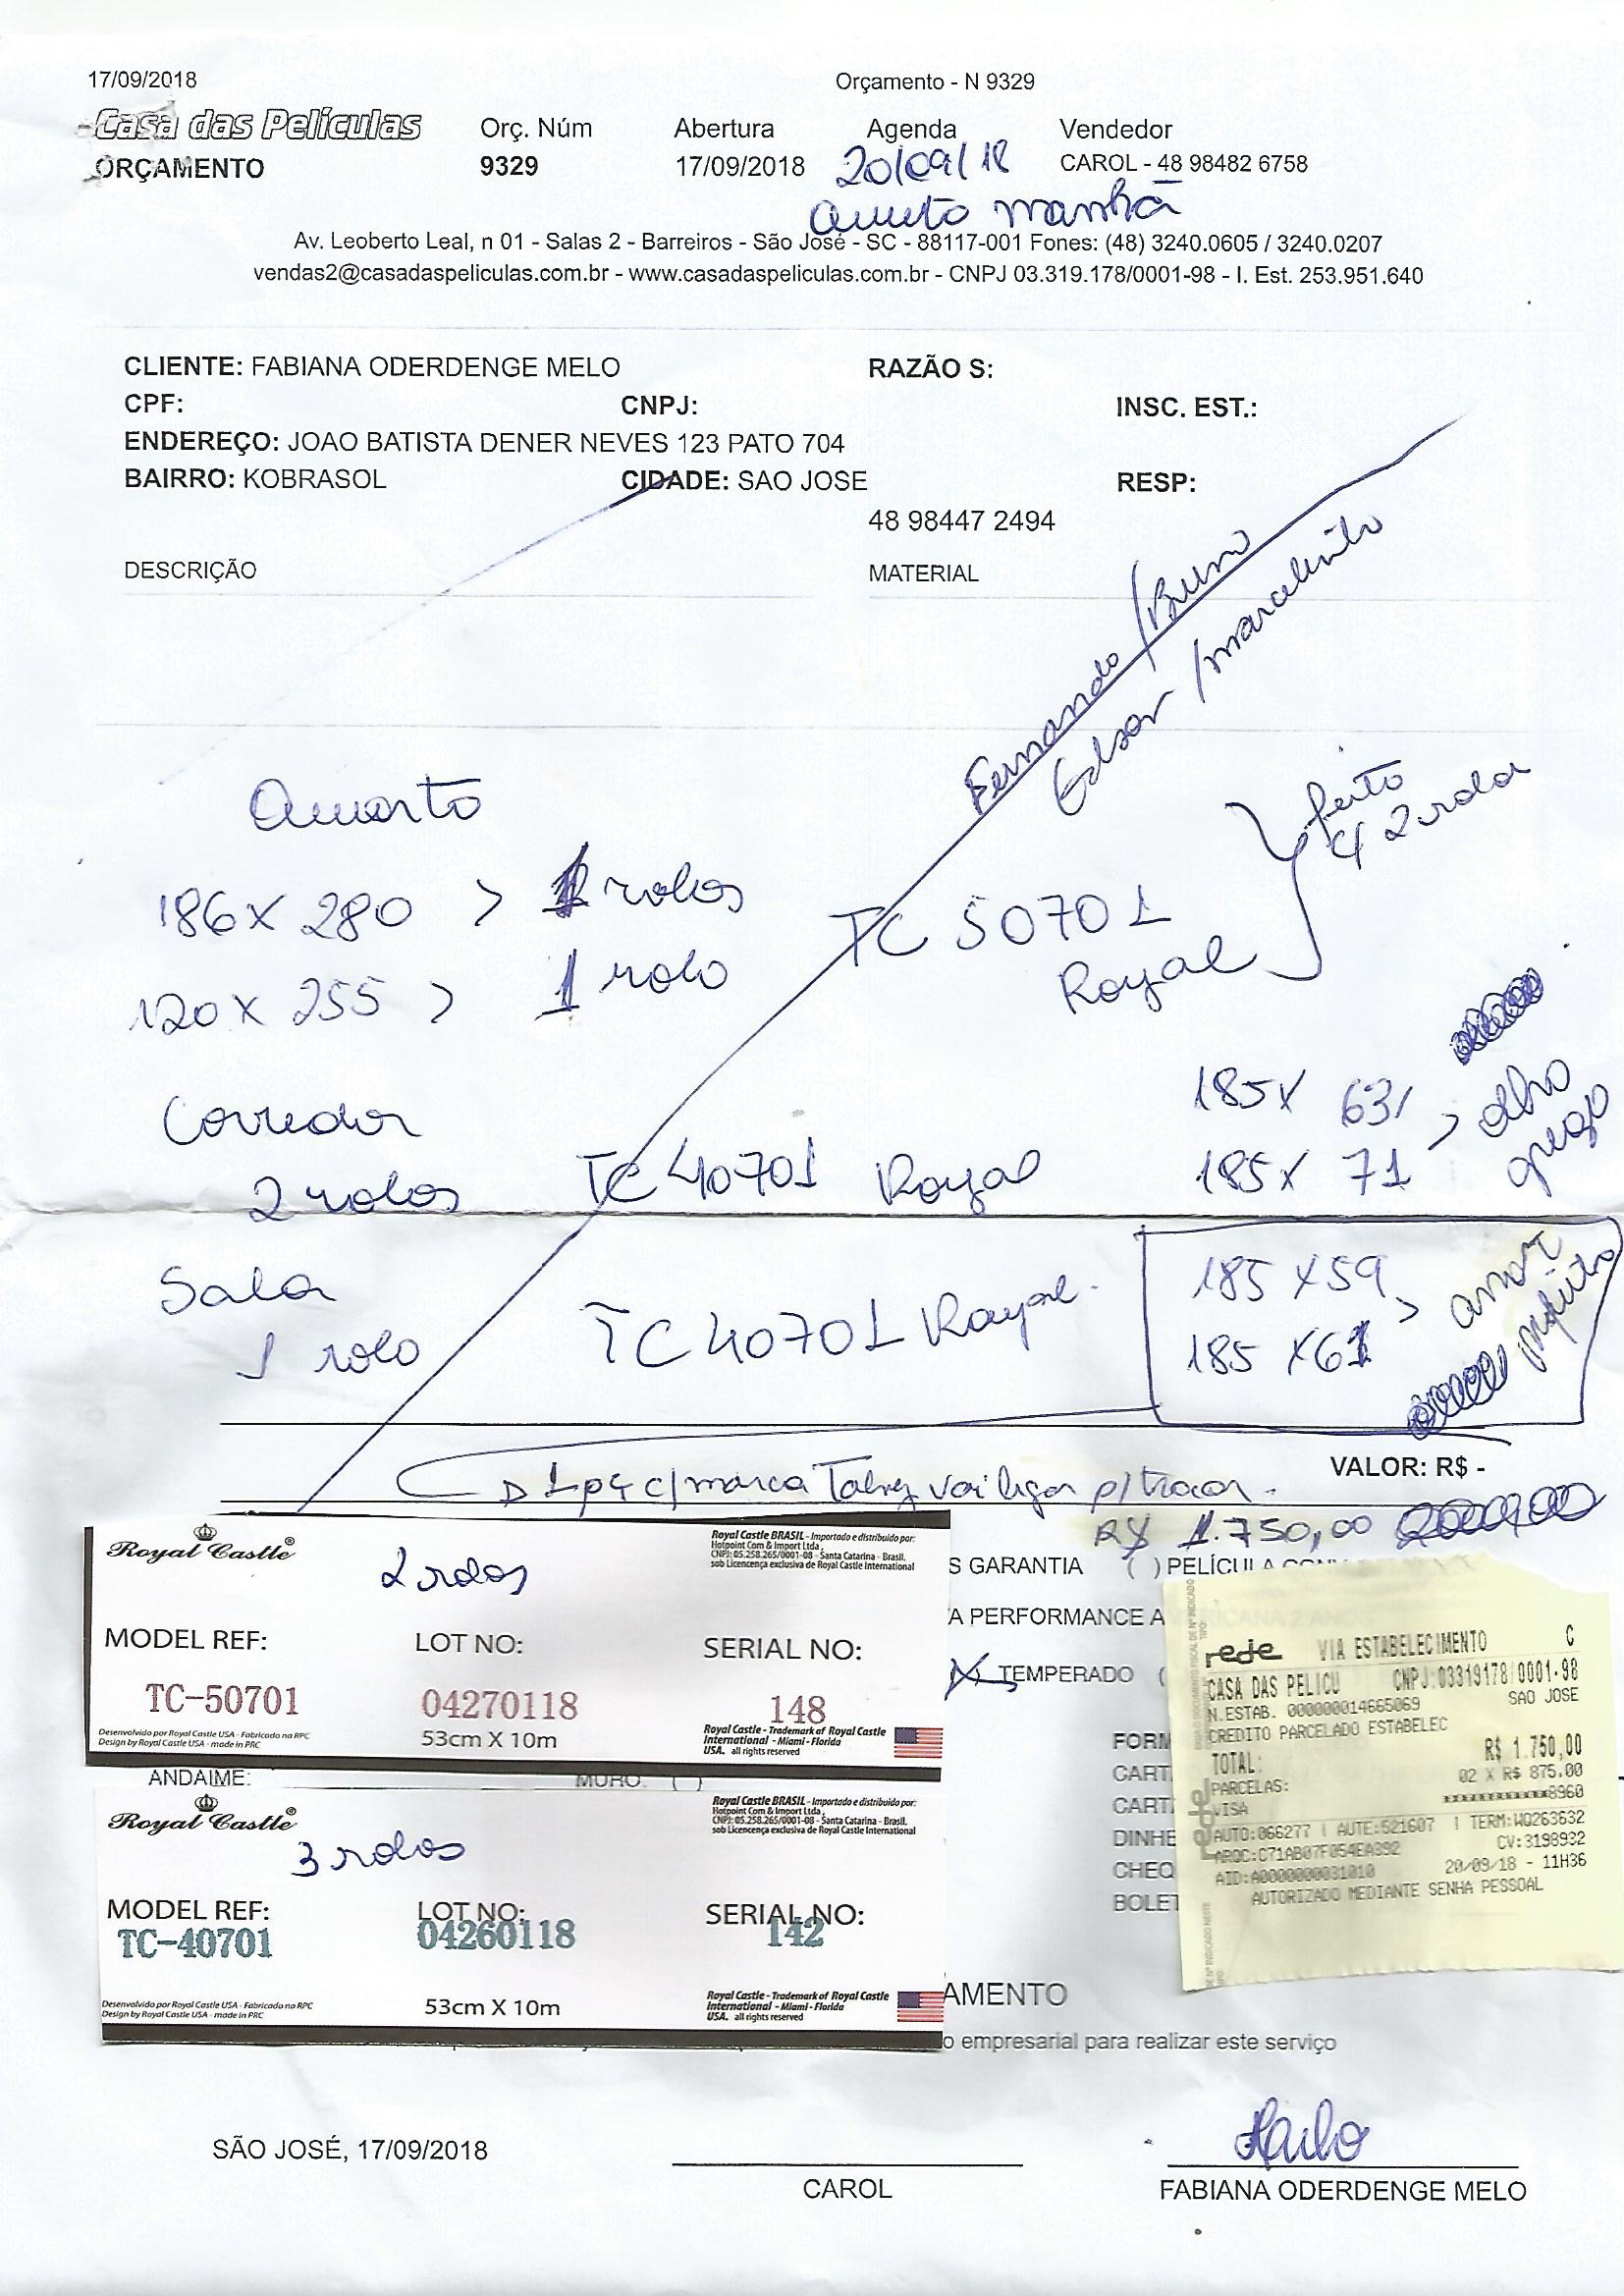 17/09/2018 Orçamento - N 9329
Casa das Películas Orç. Núm Abertura Agenda Vendedor
ORÇAMENTO 9329 17/09/2018 20/09/18 CAROL - 48 98482 6758
manhã
Av. Leoberto Leal, n 01 - Salas 2 - Barreiros - São José - SC - 88117-001 Fones: (48) 3240.0605 / 3240.0207
vendas2@casadaspeliculas.com.br - www.casadaspeliculas.com.br - CNPJ 03.319.178/0001-98 - I. Est. 253.951.640
CLIENTE: FABIANA ODERDENGE MELO RAZÃO S:
CPF: CNPJ: INSC. EST.:
ENDEREÇO: JOAO BATISTA DENER NEVES 123 PATO 704
BAIRRO: KOBRASOL CIDADE: SAO JOSE RESP:
48 98447 2494
DESCRIÇÃO MATERIAL
Fernando / Bruno
Edson / marcelinho
Quarto
feito
c/ 2 rolos
186 X 280 > 1 rolos TC 50701
120 X 255 > 1 rolo Royal
Corredor 185 X 631
2 rolos TC 40701 Royal 185 X 71 > olho grego
Sala 185 X 59
1 rolo TC 40701 Royal. 185 X 61 > amor perfeito
VALOR: R$ -
1 pç c/ marca Talvez vai ligar p/ trocar.
R$ 1.750,00
S GARANTIA ( ) PELÍCULA
Royal Castle®
2 rolos
Royal Castle BRASIL - Importado e distribuido por:
Hotpoint Com & Import Ltda,
CNPJ: 05.258.265/0001-08 - Santa Catarina - Brasil.
sob Licencença exclusiva de Royal Castle International
A PERFORMANCE A
MODEL REF: LOT NO: SERIAL NO:
TC-50701 04270118 148
Desenvolvido por Royal Castle USA - Fabricado na RPC
Design by Royal Castle USA - made in PRC
53cm X 10m
Royal Castle - Trademark of Royal Castle
International - Miami - Florida
USA. all rights reserved
(X) TEMPERADO (
ANDAIME: MURO: ( )
Royal Castle®
3 rolos
Royal Castle BRASIL - Importado e distribuido por:
Hotpoint Com & Import Ltda,
CNPJ: 05.258.265/0001-08 - Santa Catarina - Brasil.
sob Licencença exclusiva de Royal Castle International
MODEL REF: LOT NO: SERIAL NO:
TC-40701 04260118 142
Desenvolvido por Royal Castle USA - Fabricado na RPC
Design by Royal Castle USA - made in PRC
53cm X 10m
Royal Castle - Trademark of Royal Castle
International - Miami - Florida
USA. all rights reserved
FORM
CART
CART
DINHE
CHEQ
BOLET
rede VIA ESTABELECIMENTO C
CASA DAS PELICU CNPJ:03319178/0001-98
N.ESTAB. 000000014665069 SAO JOSE
CREDITO PARCELADO ESTABELEC
TOTAL: R$ 1.750,00
PARCELAS: 02 X R$ 875.00
VISA ************8960
AUTO:066277 | AUTE:521607 | TERM:WQ263632
ARQC:C71AB07F054EA392 CV:3198932
AID:A0000000031010 20/09/18 - 11H36
AUTORIZADO MEDIANTE SENHA PESSOAL
AMENTO
o empresarial para realizar este serviço
SÃO JOSÉ, 17/09/2018
CAROL FABIANA ODERDENGE MELO